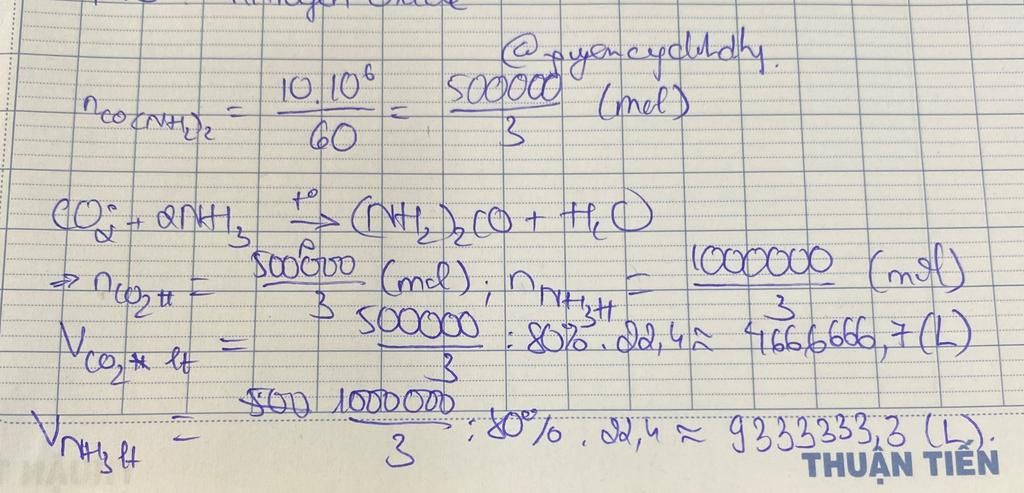 n CO(NH₂)₂ = 10.10⁶/60 = 500000/3 (mol)
CO₂ + 2NH₃ →(t°, p) (NH₂)₂CO + H₂O
⇒ n CO₂ tt = 500000/3 (mol) ; n NH₃ tt = 1000000/3 (mol)
V CO₂ lt = 500000/3 : 80% . 22,4 ≈ 4666666,7 (L)
V NH₃ lt = 1000000/3 : 80% . 22,4 ≈ 9333333,3 (L).
THUẬN TIẾN